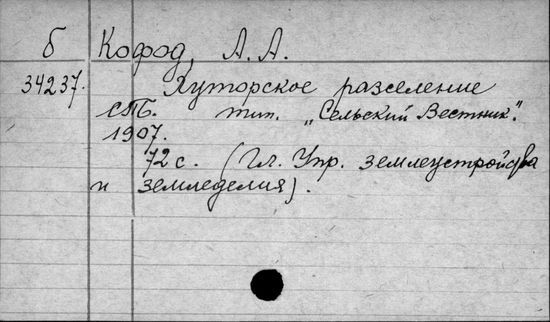 б Кофод, А. А.
34237. Хуторское разселение
СПБ. тип. „Сельский Вестник".
1907.
72 с. (Гл. Упр. землеустройства
и земледелия).